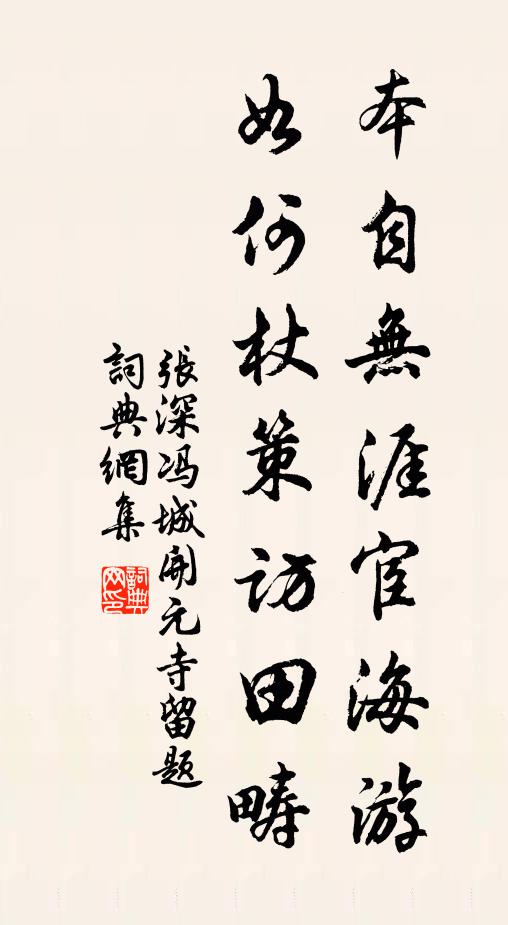 本自無涯宦海游
如何杖策訪田疇
張深冯城開元寺留題
詞典網集
詞典
网印